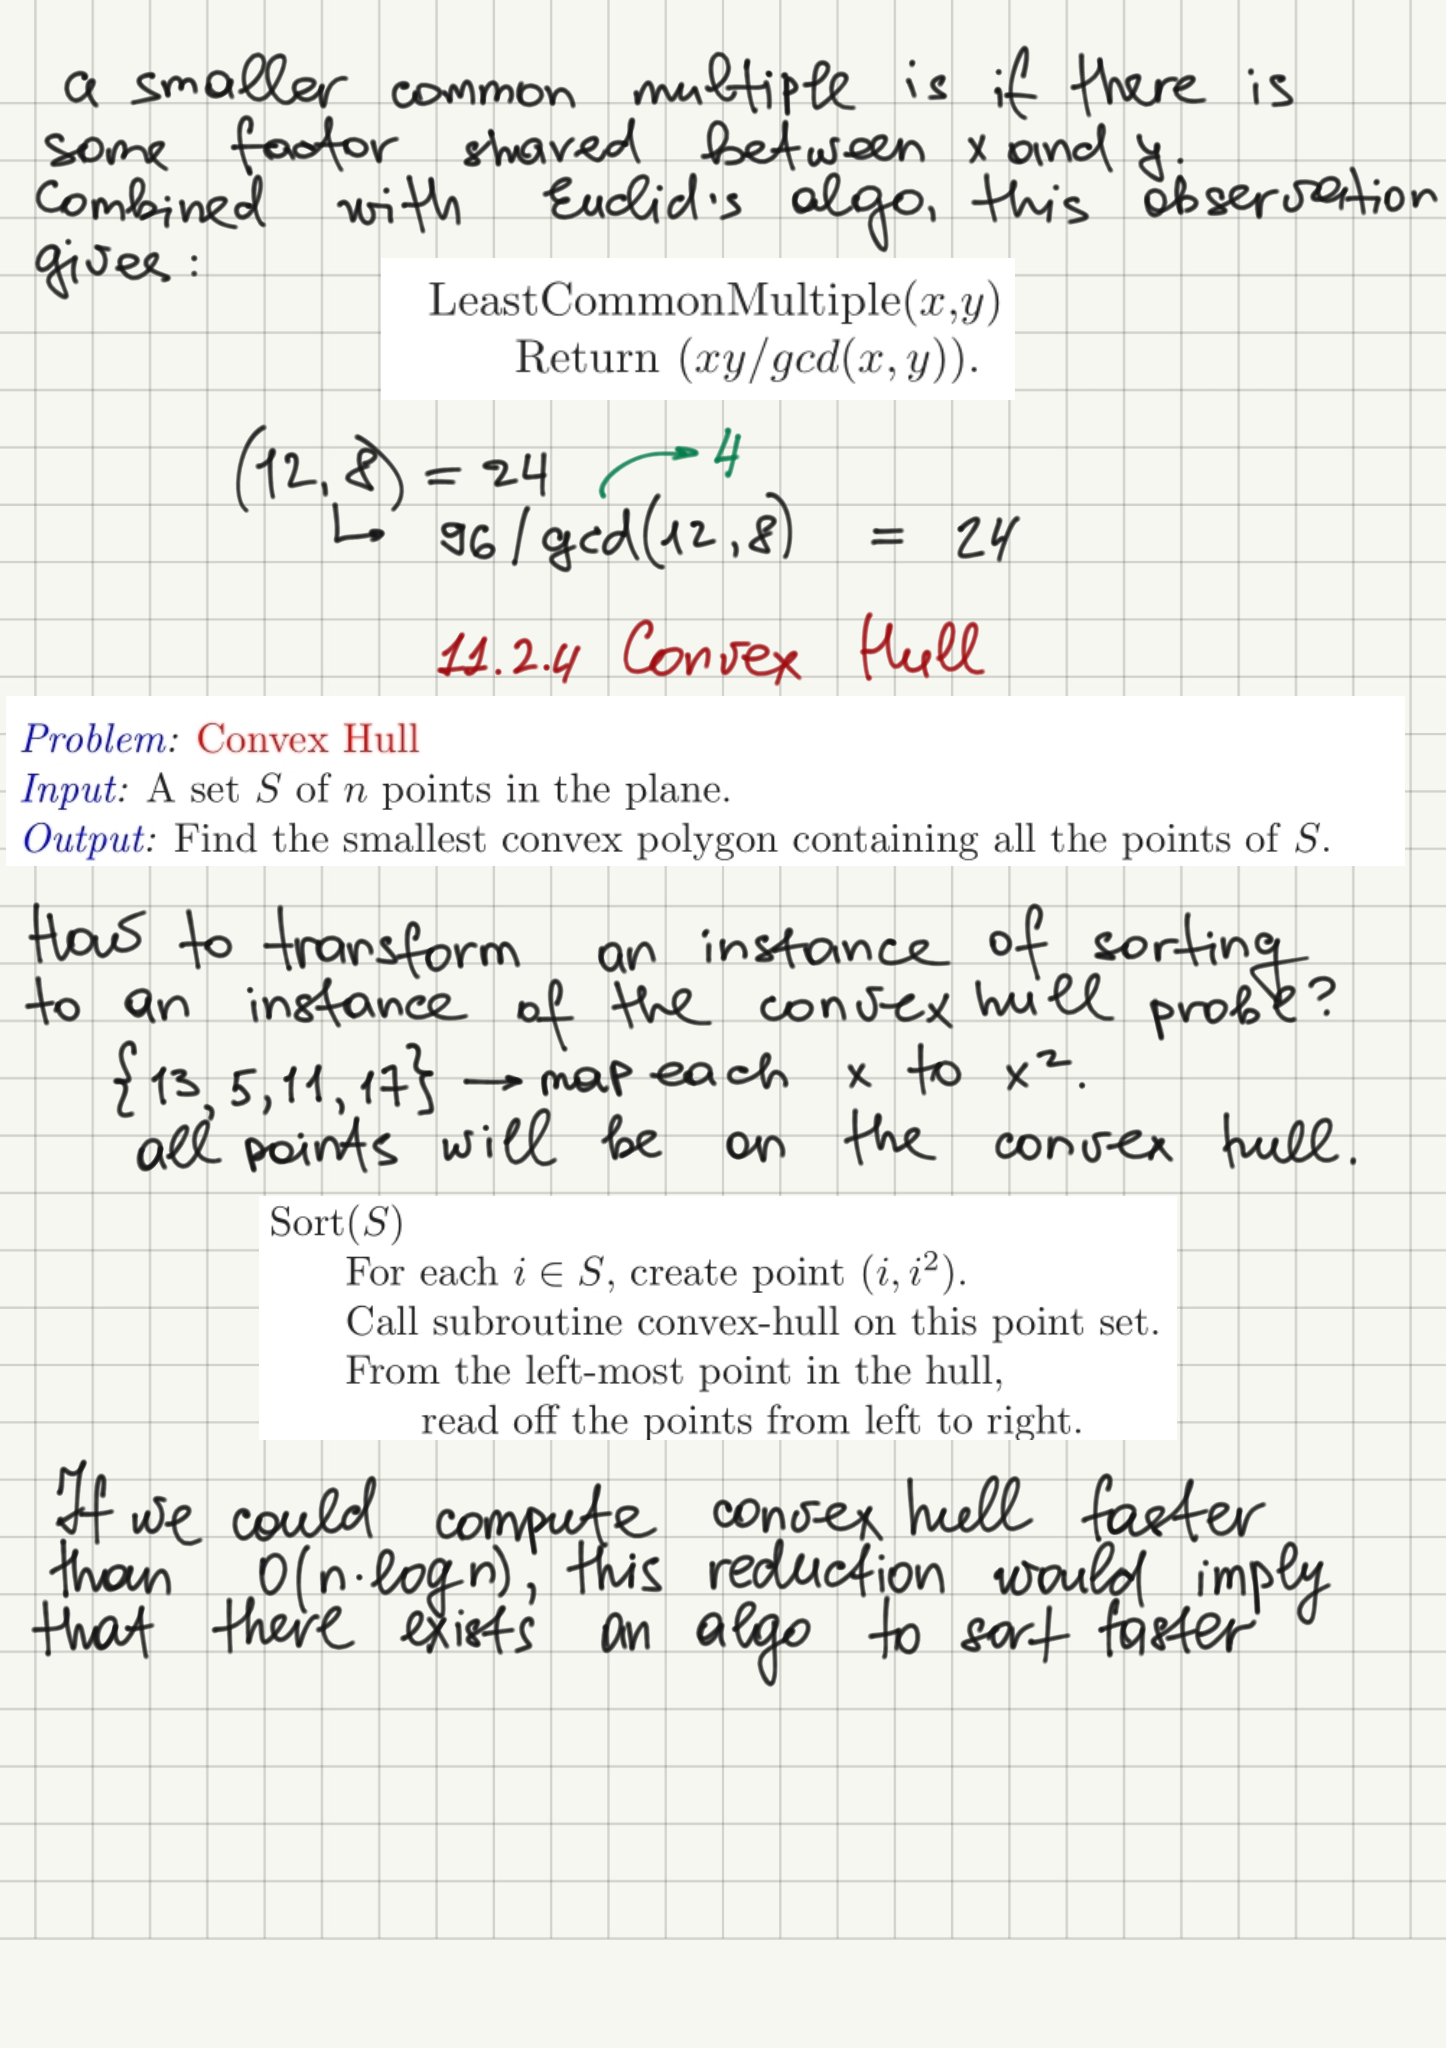 a smaller common multiple is if there is
some factor shared between x and y.
Combined with Euclid's algo, this observation
gives:
LeastCommonMultiple(x,y)
Return (xy/gcd(x, y)).
(12, 8) = 24
4
↳ 96 / gcd(12, 8) = 24
11.2.4 Convex Hull
Problem: Convex Hull
Input: A set S of n points in the plane.
Output: Find the smallest convex polygon containing all the points of S.
How to transform an instance of sorting
to an instance of the convex hull proble?
{13, 5, 11, 17} → map each x to x².
all points will be on the convex hull.
Sort(S)
For each i ∈ S, create point (i, i²).
Call subroutine convex-hull on this point set.
From the left-most point in the hull,
read off the points from left to right.
If we could compute convex hull faster
than O(n·log n), this reduction would imply
that there exists an algo to sort faster